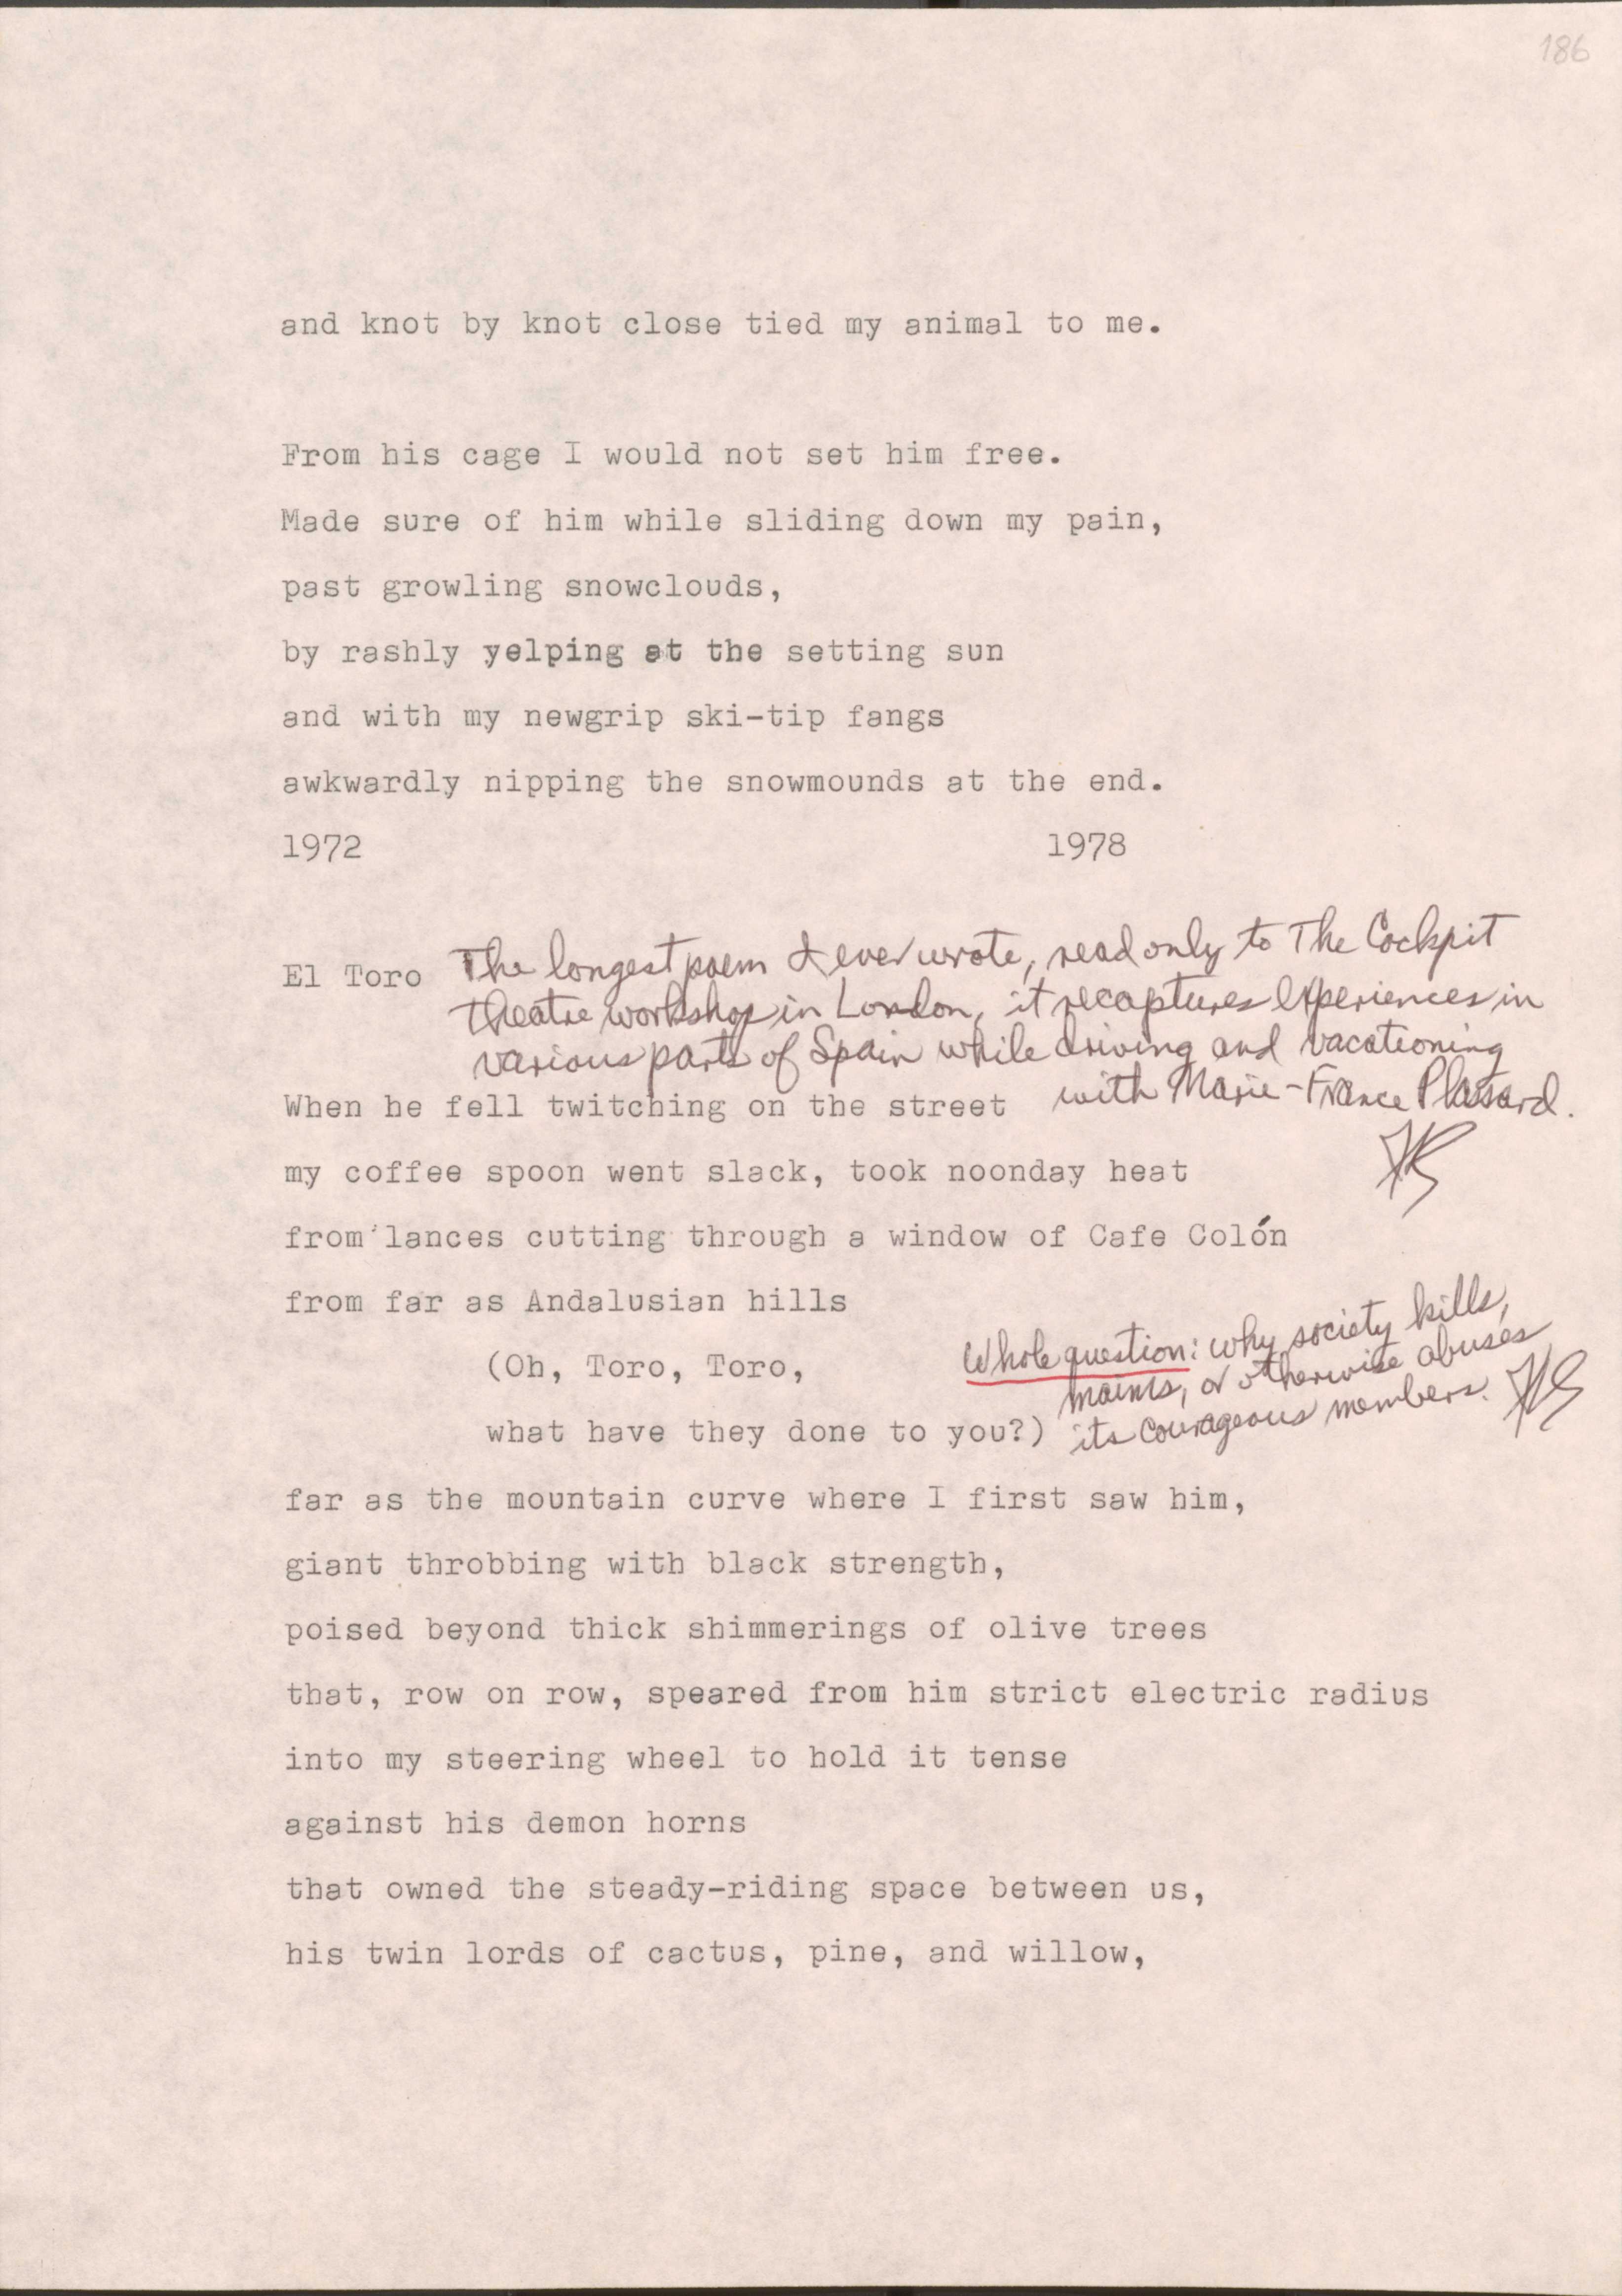 186
and knot by knot close tied my animal to me.
From his cage I would not set him free.
Made sure of him while sliding down my pain,
past growling snowclouds,
by rashly yelping at the setting sun
and with my newgrip ski-tip fangs
awkwardly nipping the snowmounds at the end.
1972 1978
El Toro
The longest poem I ever wrote, read only to The Cockpit
theatre workshop in London, it recaptures experiences in
various parts of Spain while driving and vacationing
with Marie-France Plassard.
When he fell twitching on the street
my coffee spoon went slack, took noonday heat
from lances cutting through a window of Cafe Colón
from far as Andalusian hills
(Oh, Toro, Toro,
what have they done to you?)
Whole question: why society kills,
maims, or otherwise abuses
its courageous members.
far as the mountain curve where I first saw him,
giant throbbing with black strength,
poised beyond thick shimmerings of olive trees
that, row on row, speared from him strict electric radius
into my steering wheel to hold it tense
against his demon horns
that owned the steady-riding space between us,
his twin lords of cactus, pine, and willow,